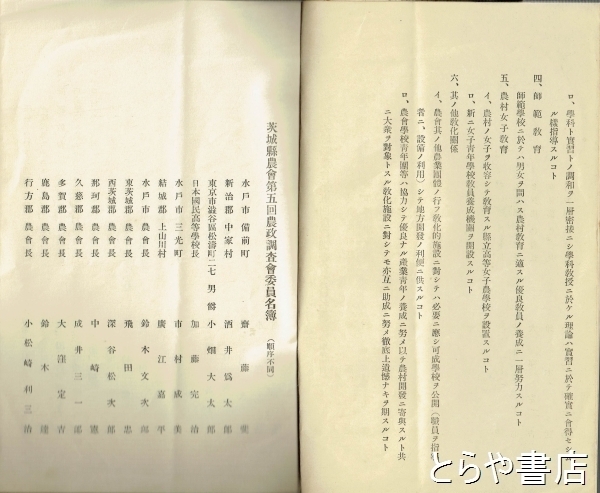 ロ、學科ト實習トノ調和ヲ一層密接ニシ學科教授ニ於ケル理論ハ實習ニ於テ確實ニ會得セシム
ル樣指導スルコト
四、師範教育
師範學校ニ於テハ男女ヲ問ハス農村教育ニ適スル優良教員ノ養成ニ一層努力スルコト
五、農村女子教育
イ、農村ノ女子ヲ收容シテ教育スル縣立高等女子農學校ヲ設置スルコト
ロ、新ニ女子青年學校教員養成機關ヲ開設スルコト
六、其ノ他教化關係
イ、農會其ノ他農業團體ノ行フ教化的施設ニ對シテハ必要ニ應シ可成學校ヲ公開(職員ヲ指導
者ニ、設備ノ利用)シテ地方開發ノ利便ニ供スルコト
ロ、農會學校青年團等ハ協力シテ優良ナル産業青年ノ養成ニ努メ以テ農村開發ニ寄與スルト共
ニ大衆ヲ對象トスル教化施設ニ對シテモ亦互ニ助成ニ努メ徹底上遺憾ナキヲ期スルコト
茨城縣農會第五回農政調査會委員名簿(順序不同)
水戸市備前町 齋藤
新治郡中家村 酒井爲太郎
東京市澁谷區松濤町二七 男爵 小畑大太郎
日本國民高等學校長 加藤完治
水戸市三光町 市村成美
結城郡上山川村 廣江嘉平
水戸市農會長 鈴木文次郎
東茨城郡農會長 飛田忠
西茨城郡農會長 深谷松次郎
那珂郡農會長 中崎憲
久慈郡農會長 成井三一郎
多賀郡農會長 大窪定吉
鹿島郡農會長 鈴木達
行方郡農會長 小松崎利三治
とらや書店